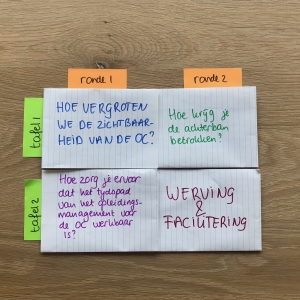 ronde 1
ronde 2
tafel 1
HOE VERGROTEN
WE DE ZICHTBAAR-
HEID VAN DE OC?
Hoe krijg je
de achterban
betrokken?
tafel 2
Hoe zorg je ervoor
dat het tijdspad
van het opleidings-
management voor
de OC werkbaar
is?
WERVING
&
FACILITERING